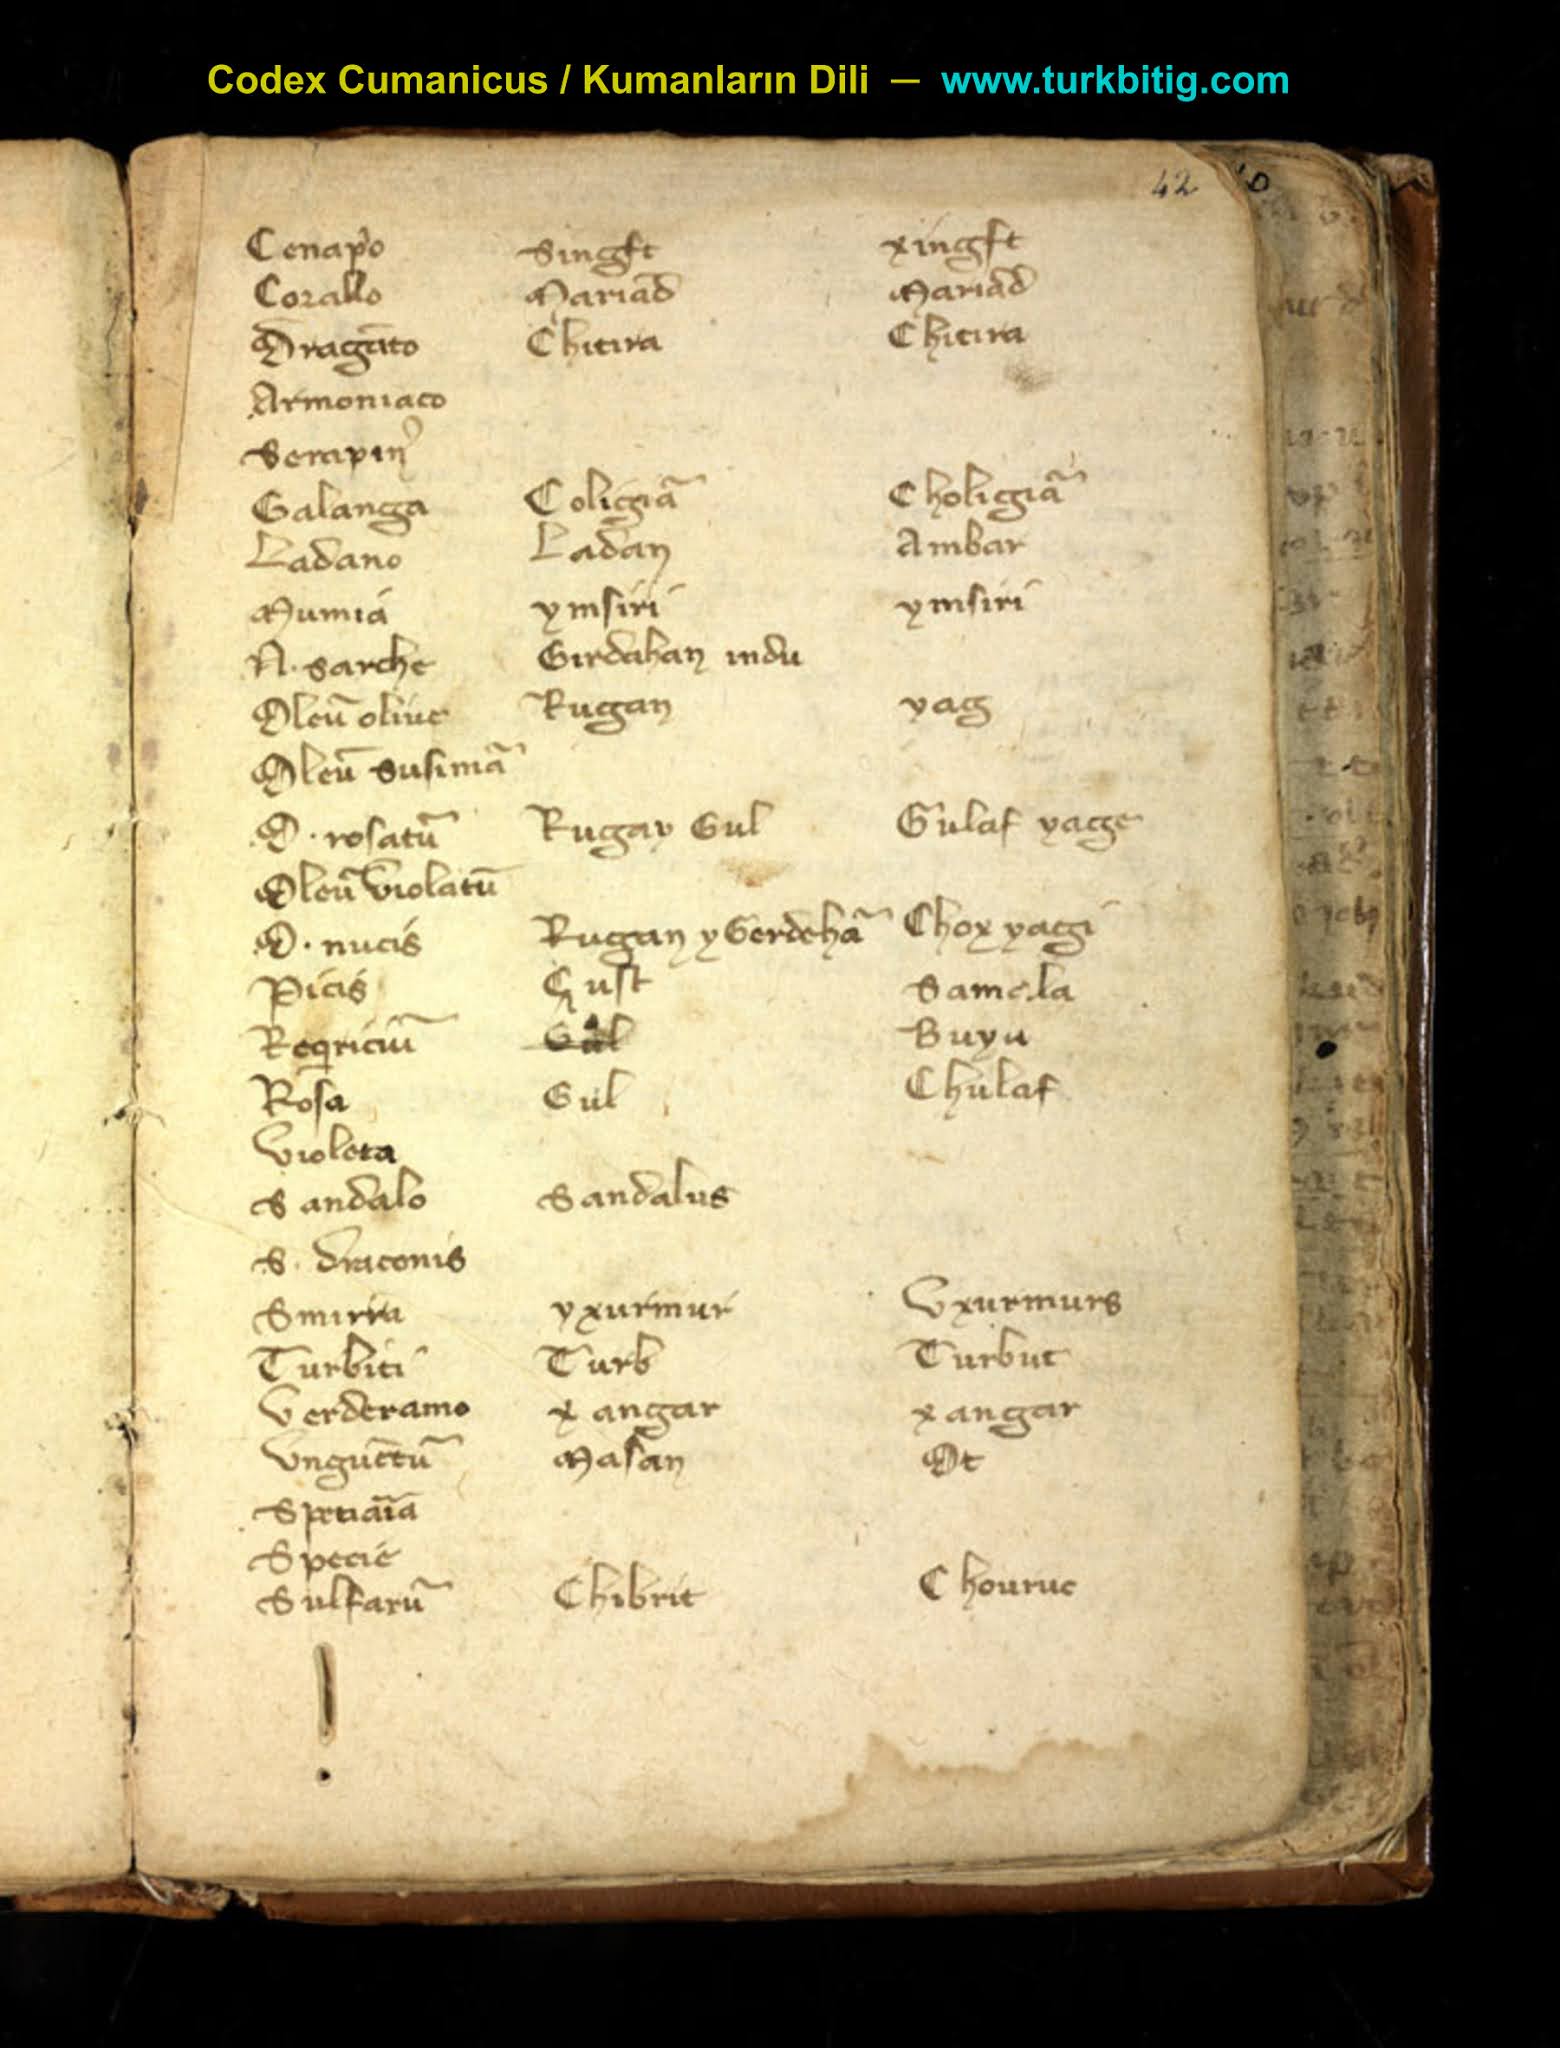 Codex Cumanicus / Kumanların Dili — www.turkbitig.com
42
Cenap̄o Singft xingft
Corallo Mariād Mariād
Dragāto Chitira Chitira
Armoniaco
Serapin̄
Galanga Coligiā Choligiā
Ladano Ladan Ambar
Mumia ymsiri ymsiri
N. sarche Girdahan indu
Oleū oliue Rugan yag
Oleū susimā
O. rosatū Rugay Gul Gulaf yage
Oleū violatū
O. nucis Rugan y Gerdehā Chox yagi
Picis Cust Samala
Reqriciui̅ Gul Buyu
Rosa Gul Chulaf
Violeta
Sandalo Sandalus
S. draconis
Smirra yxurmur Vxurmurs
Turbiti Turb Turbut
Verderamo xangar xangar
Vnguētū Masan Ot
Specie
Sulfarū Chibrit Chouruc